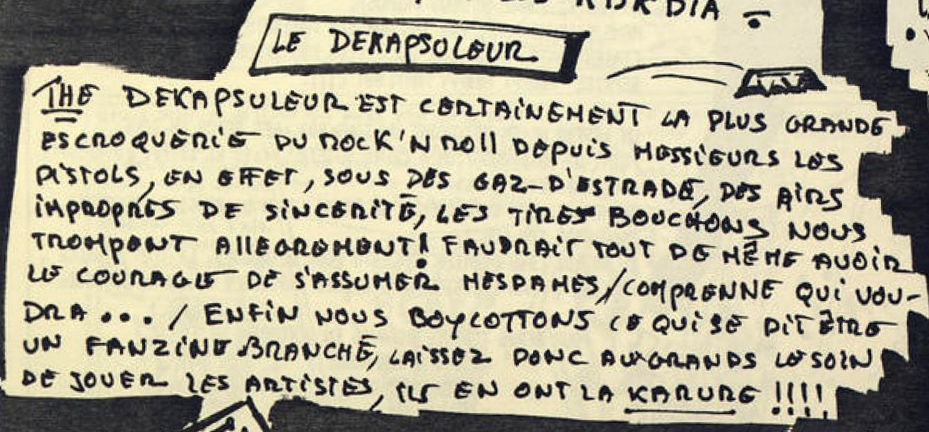 LE DEKAPSULEUR
THE DEKAPSULEUR EST CERTAINEMENT LA PLUS GRANDE
ESCROQUERIE DU ROCK'N ROll DEPUIS MESSIEURS LES
PISTOLS, EN EFFET, SOUS DES GAZ-D'ESTRADE, DES AIRS
IMPROPRES DE SINCERITÉ, LES TIRES BOUCHONS NOUS
TROMPENT AllEGREMENT! FAUDRAIT TOUT DE MÊME AVOIR
LE COURAGE DE S'ASSUMER MESDAMES/COMPRENNE QUI VOU-
DRA ... / ENFIN NOUS BOYCOTTONS CE QUI SE DIT ÊTRE
UN FANZINE BRANCHÉ, LAISSEZ DONC AUX GRANDS LE SOIN
DE JOUER LES ARTISTES, ILS EN ONT LA KARURE !!!!